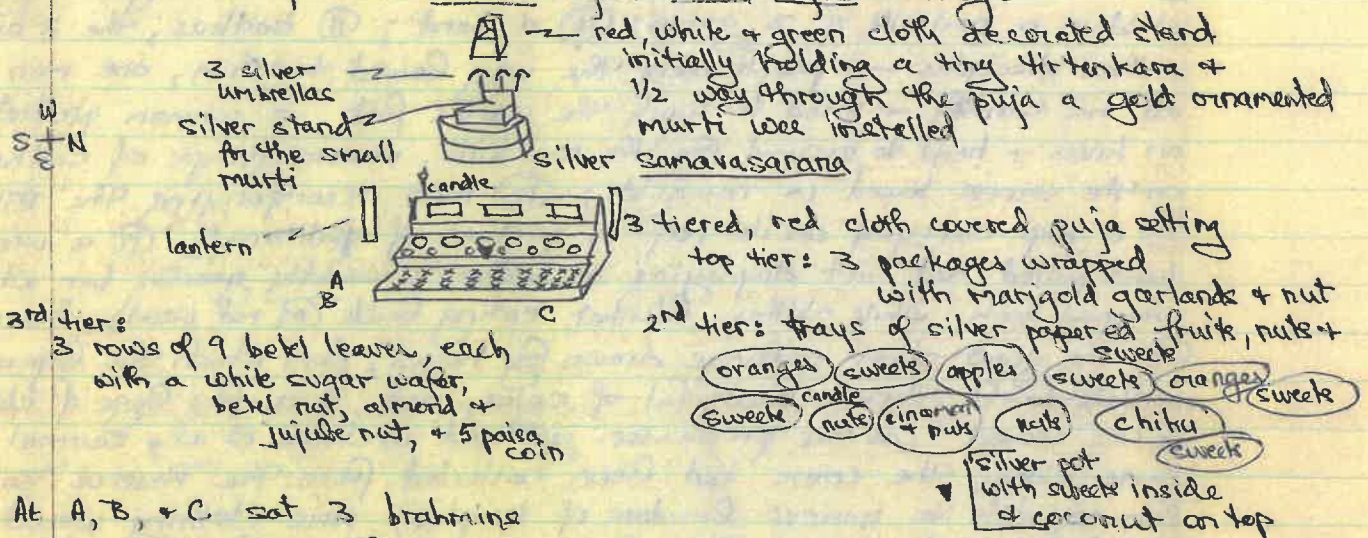 red, white & green cloth decorated stand
initially holding a tiny tirtenkara &
1/2 way through the puja a gold ornamented
murti was installed
3 silver
umbrellas
silver stand
for the small
murti
W
S N
E
silver samavasarana
candle
lantern
3 tiered, red cloth covered puja setting
top tier: 3 packages wrapped
with marigold garlands & nut
A
B
C
3rd tier:
3 rows of 9 betel leaves, each
with a white sugar wafer,
betel nut, almond &
jujube nut, & 5 paisa
coin
2nd tier: trays of silver papered fruits, nuts &
sweets
oranges sweets apples sweets oranges sweets
candle
sweets nuts cinamen & nuts nuts chiku
sweets
silver pot
with sweets inside
& coconut on top
At A, B, & C sat 3 brahmins